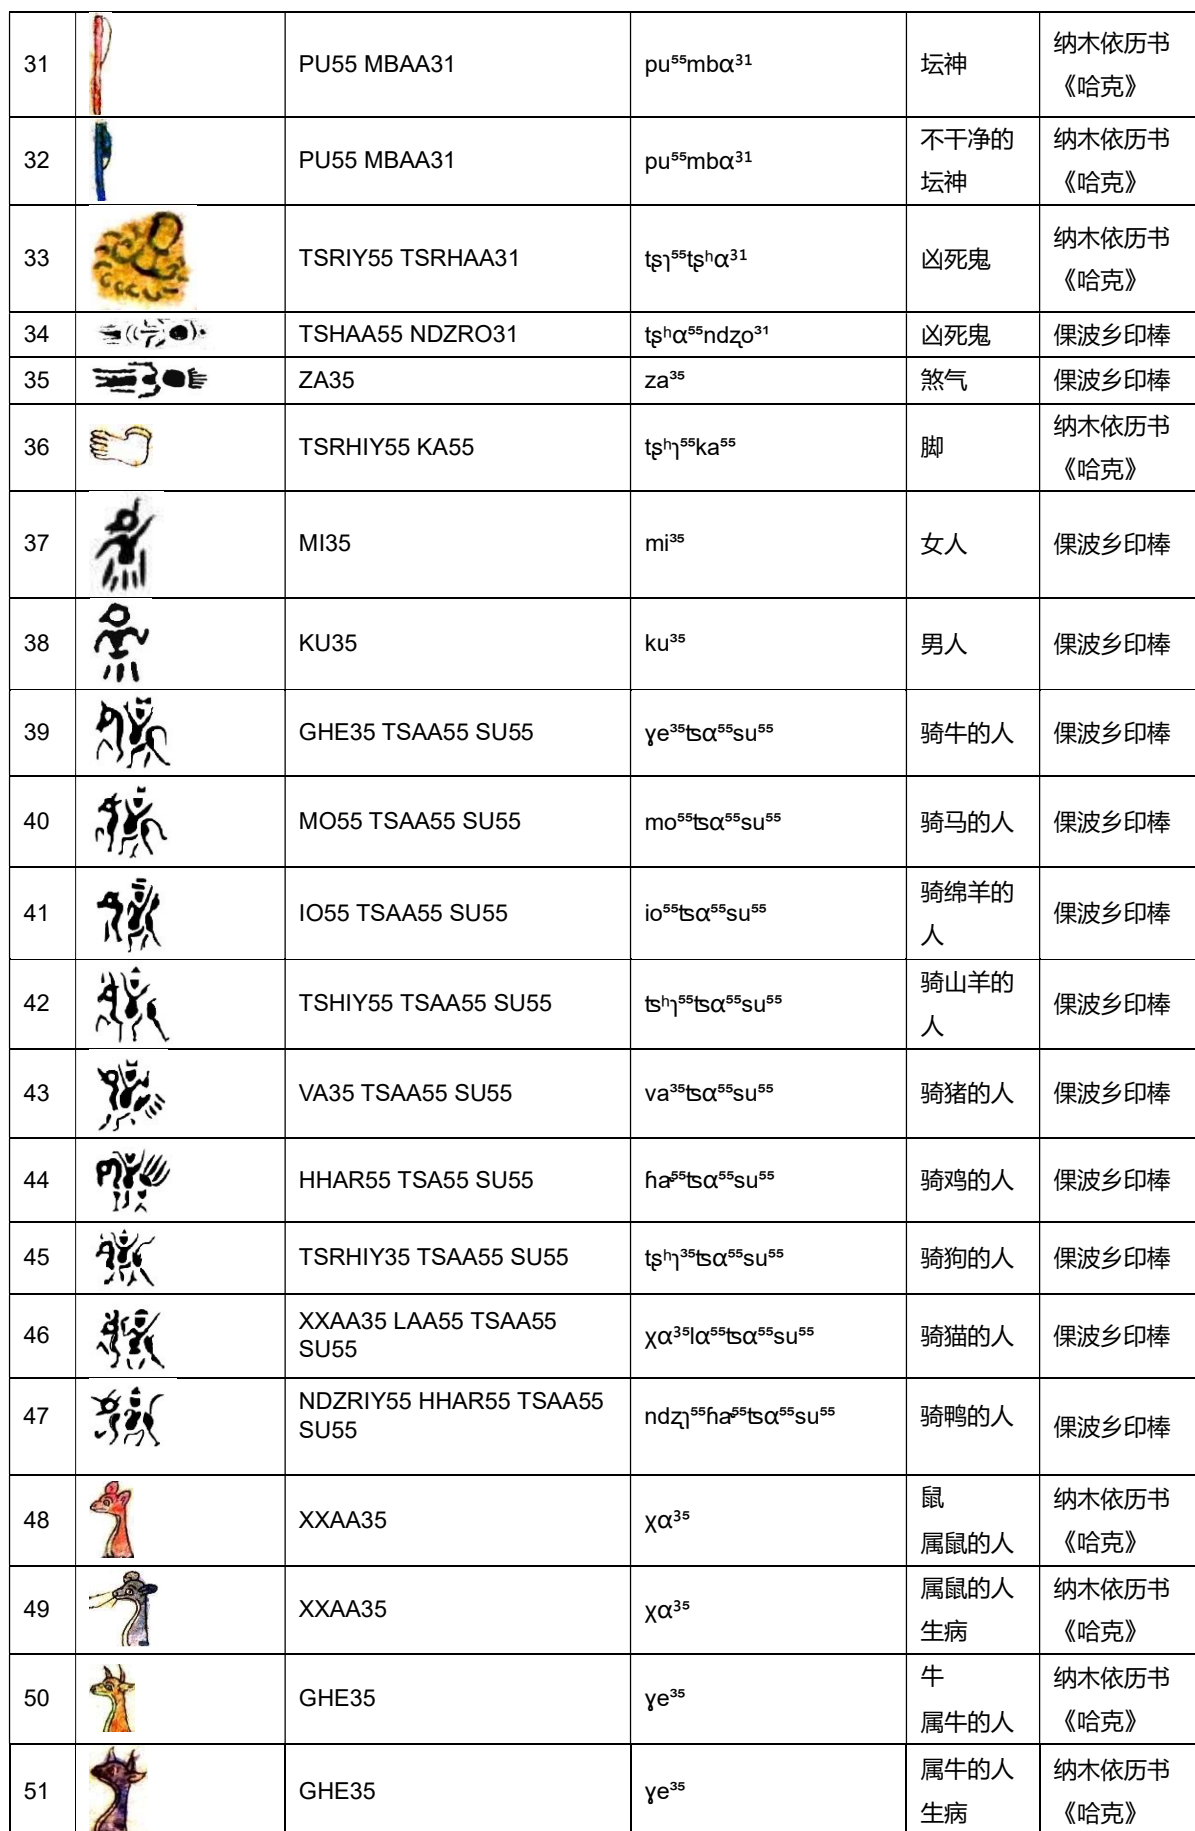 31 PU55 MBAA31 pu⁵⁵mbɑ³¹ 坛神 纳木依历书
《哈克》
32 PU55 MBAA31 pu⁵⁵mbɑ³¹ 不干净的 纳木依历书
坛神 《哈克》
33 TSRIY55 TSRHAA31 tʂʅ⁵⁵tʂʰɑ³¹ 凶死鬼 纳木依历书
《哈克》
34 TSHAA55 NDZRO31 tʂʰɑ⁵⁵ndʐo³¹ 凶死鬼 倮波乡印棒
35 ZA35 za³⁵ 煞气 倮波乡印棒
36 TSRHIY55 KA55 tʂʰʅ⁵⁵ka⁵⁵ 脚 纳木依历书
《哈克》
37 MI35 mi³⁵ 女人 倮波乡印棒
38 KU35 ku³⁵ 男人 倮波乡印棒
39 GHE35 TSAA55 SU55 ɣe³⁵ʦɑ⁵⁵su⁵⁵ 骑牛的人 倮波乡印棒
40 MO55 TSAA55 SU55 mo⁵⁵ʦɑ⁵⁵su⁵⁵ 骑马的人 倮波乡印棒
41 IO55 TSAA55 SU55 io⁵⁵ʦɑ⁵⁵su⁵⁵ 骑绵羊的 倮波乡印棒
人
42 TSHIY55 TSAA55 SU55 ʦʰʅ⁵⁵ʦɑ⁵⁵su⁵⁵ 骑山羊的 倮波乡印棒
人
43 VA35 TSAA55 SU55 va³⁵ʦɑ⁵⁵su⁵⁵ 骑猪的人 倮波乡印棒
44 HHAR55 TSA55 SU55 ɦa˞⁵⁵ʦɑ⁵⁵su⁵⁵ 骑鸡的人 倮波乡印棒
45 TSRHIY35 TSAA55 SU55 tʂʰʅ³⁵ʦɑ⁵⁵su⁵⁵ 骑狗的人 倮波乡印棒
46 XXAA35 LAA55 TSAA55 χɑ³⁵lɑ⁵⁵ʦɑ⁵⁵su⁵⁵ 骑猫的人 倮波乡印棒
SU55
47 NDZRIY55 HHAR55 TSAA55 ndʐʅ⁵⁵ɦa˞⁵⁵ʦɑ⁵⁵su⁵⁵ 骑鸭的人 倮波乡印棒
SU55
48 XXAA35 χɑ³⁵ 鼠 纳木依历书
属鼠的人 《哈克》
49 XXAA35 χɑ³⁵ 属鼠的人 纳木依历书
生病 《哈克》
50 GHE35 ɣe³⁵ 牛 纳木依历书
属牛的人 《哈克》
51 GHE35 ɣe³⁵ 属牛的人 纳木依历书
生病 《哈克》